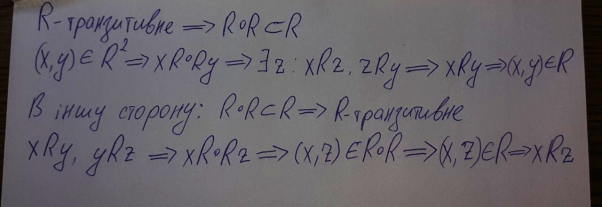 R-транзитивне ⟹ R∘R⊂R
(x,y)∈R² ⟹ xR∘Ry ⟹ ∃z: xRz, zRy ⟹ xRy ⟹ (x,y)∈R
В іншу сторону: R∘R⊂R ⟹ R-транзитивне
xRy, yRz ⟹ xR∘Rz ⟹ (x,z)∈R∘R ⟹ (x,z)∈R ⟹ xRz